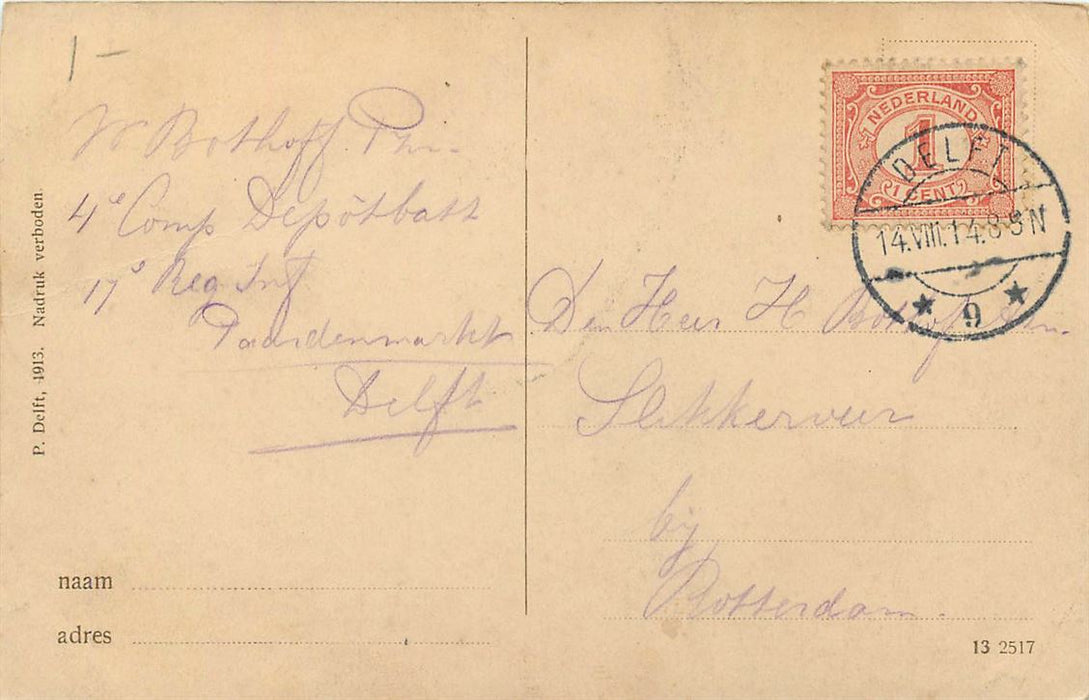 1 -
W Bothoff Phz.
4e Comp Depôtbatt
17e Reg Inf
Paardenmarkt
Delft
P. Delft, 1913. Nadruk verboden.
naam
adres
NEDERLAND
1
1 CENT
DELFT
14.VIII.14.8-9N
9
Den Heer H Bothoff Phz.
Slikkerveer
bij
Rotterdam.
13 2517